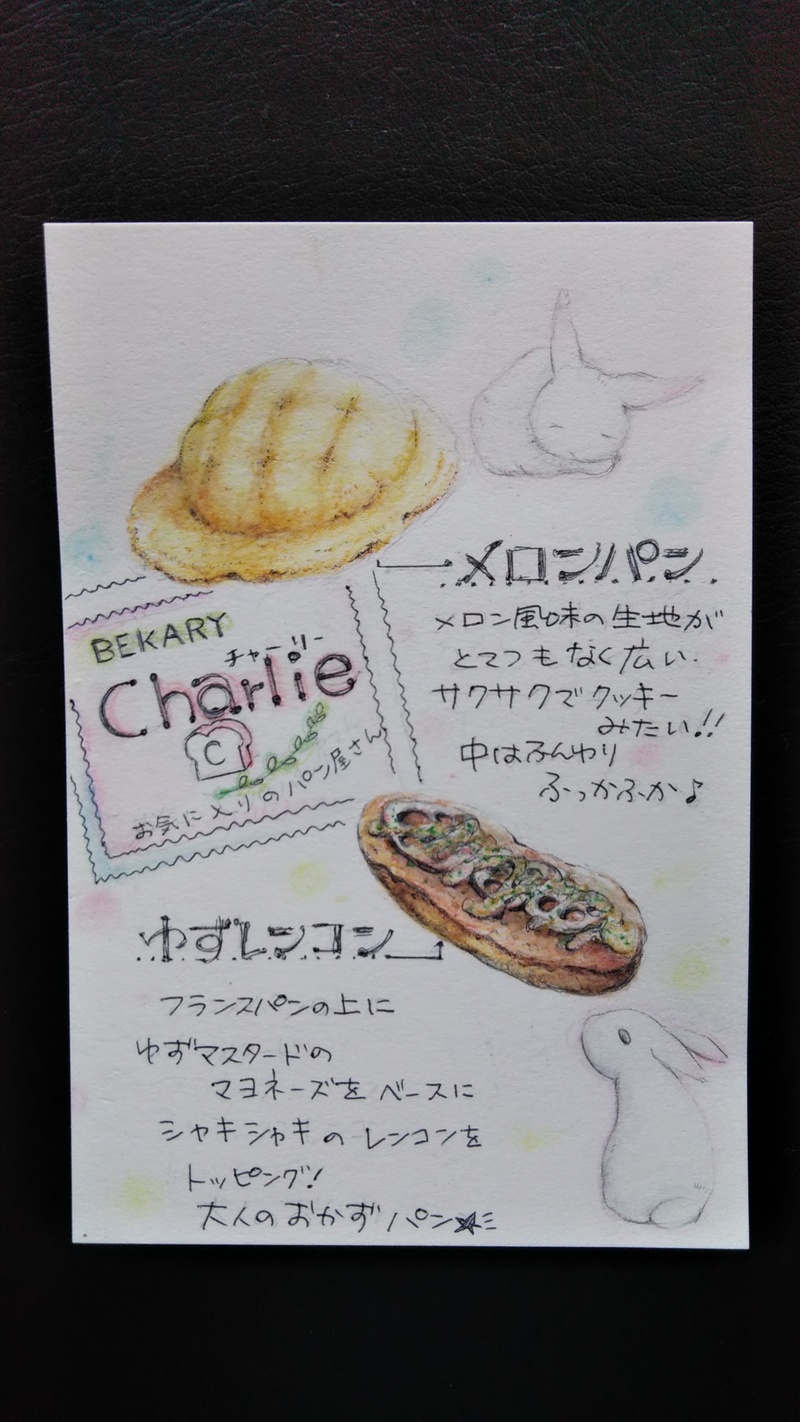 メロンパン
メロン風味の生地が
とてつもなく広い.
サクサクでクッキー
みたい!!
中はふんわり
ふっかふか♪
BEKARY
チャーリー
Charlie
C
お気に入りのパン屋さん
ゆずレンコン
フランスパンの上に
ゆずマスタードの
マヨネーズをベースに
シャキシャキのレンコンを
トッピング!
大人のおかずパン★